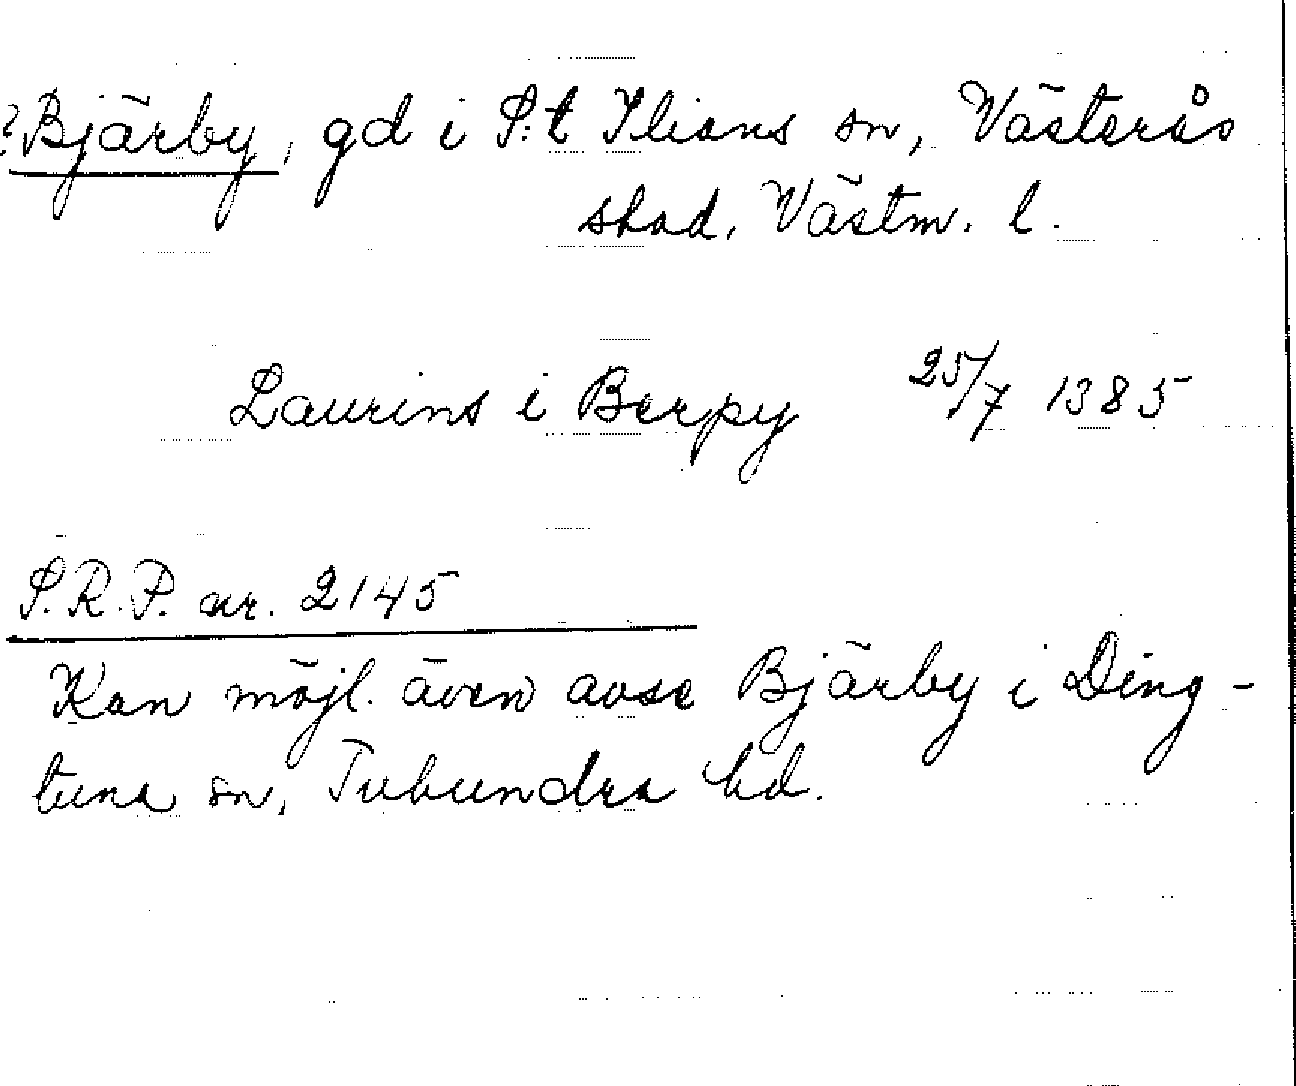 ?Bjärby, gd i S:t Ilians sn, Västerås
stad, Västm. l.
Laurins i Berpy 25/7 1385
S.R.P. nr. 2145
Kan möjl. även avse Bjärby i Ding-
tuna sn, Tuhundra hd.